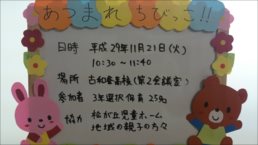 あつまれ ちびっこ!!
日時 平成29年11月21日(火)
10:30~11:40
場所 古和釜高校(第2会議室)
参加者 3年選択保育 25名
協力 松が丘児童ホーム
地域の親子の方々